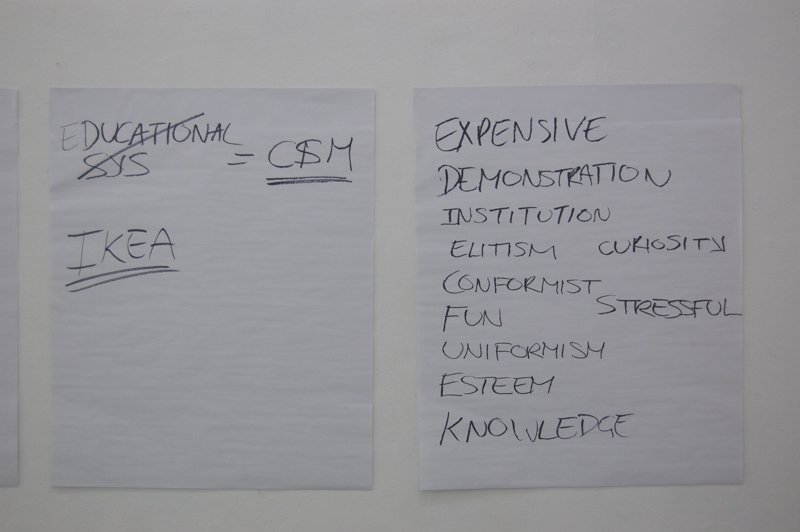 EDUCATIONAL
SYS = C$M
IKEA
EXPENSIVE
DEMONSTRATION
INSTITUTION
ELITISM CURIOSITY
CONFORMIST
FUN STRESSFUL
UNIFORMISM
ESTEEM
KNOWLEDGE